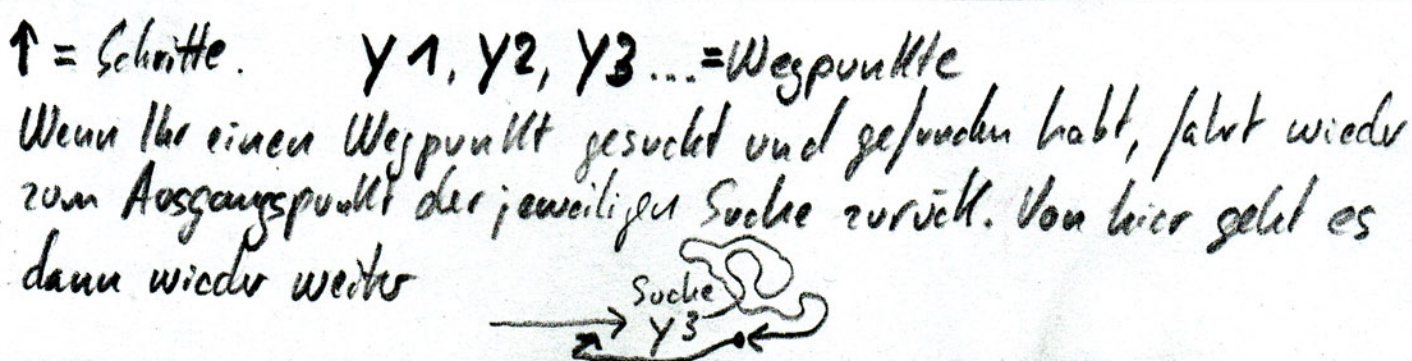 ↑ = Schritte. Y1, Y2, Y3 ... = Wegpunkte
Wenn Ihr einen Wegpunkt gesucht und gefunden habt, fahrt wieder
zum Ausgangspunkt der jeweiligen Suche zurück. Von hier geht es
dann wieder weiter
Suche
Y3